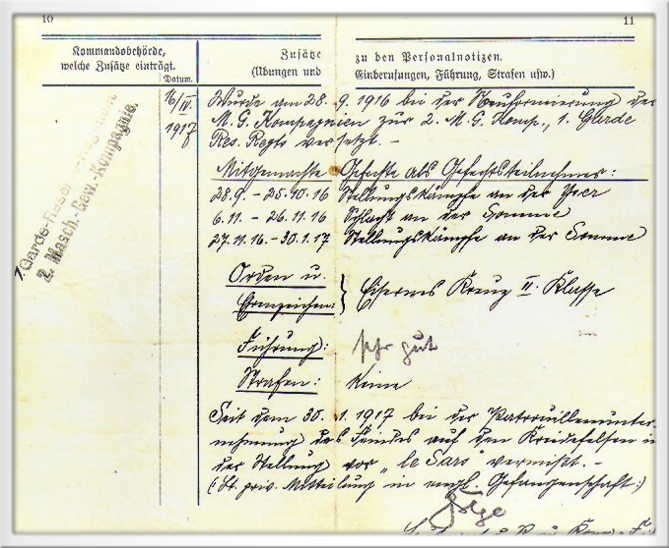 10
11
Kommandobehörde,
welche Zusätze einträgt.
Datum.
Zusätze
(Übungen und
zu den Personalnotizen.
Einberufungen, Führung, Strafen usw.)
1. Garde-Reserve-
2. Masch.-Gew.-Kompagnie.
16/IV.
1917
Wurde am 28. 9. 1916 bei der Neuformierung der
M. G. Kompagnien zur 2. M. G. Komp., 1. Garde
Res. Regts versetzt. -
Mitgemachte Gefechte als Gefechtsteilnehmer:
28.9. - 25.10.16 Stellungskämpfe an der Yser
6.11. - 26.11.16 Schlacht an der Somme
27.11.16. - 30.1.17 Stellungskämpfe an der Somme
Orden u.
Ehrenzeichen: } Eisernes Kreuz II. Klasse
Führung: sehr gut
Strafen: Keine
Seit dem 30. 1. 1917 bei der Patrouillenunter-
nehmung des Feindes auf den Kreidefelsen in
der Stellung vor „le Sars" vermißt. -
(: Lt. priv. Mitteilung in engl. Gefangenschaft :)